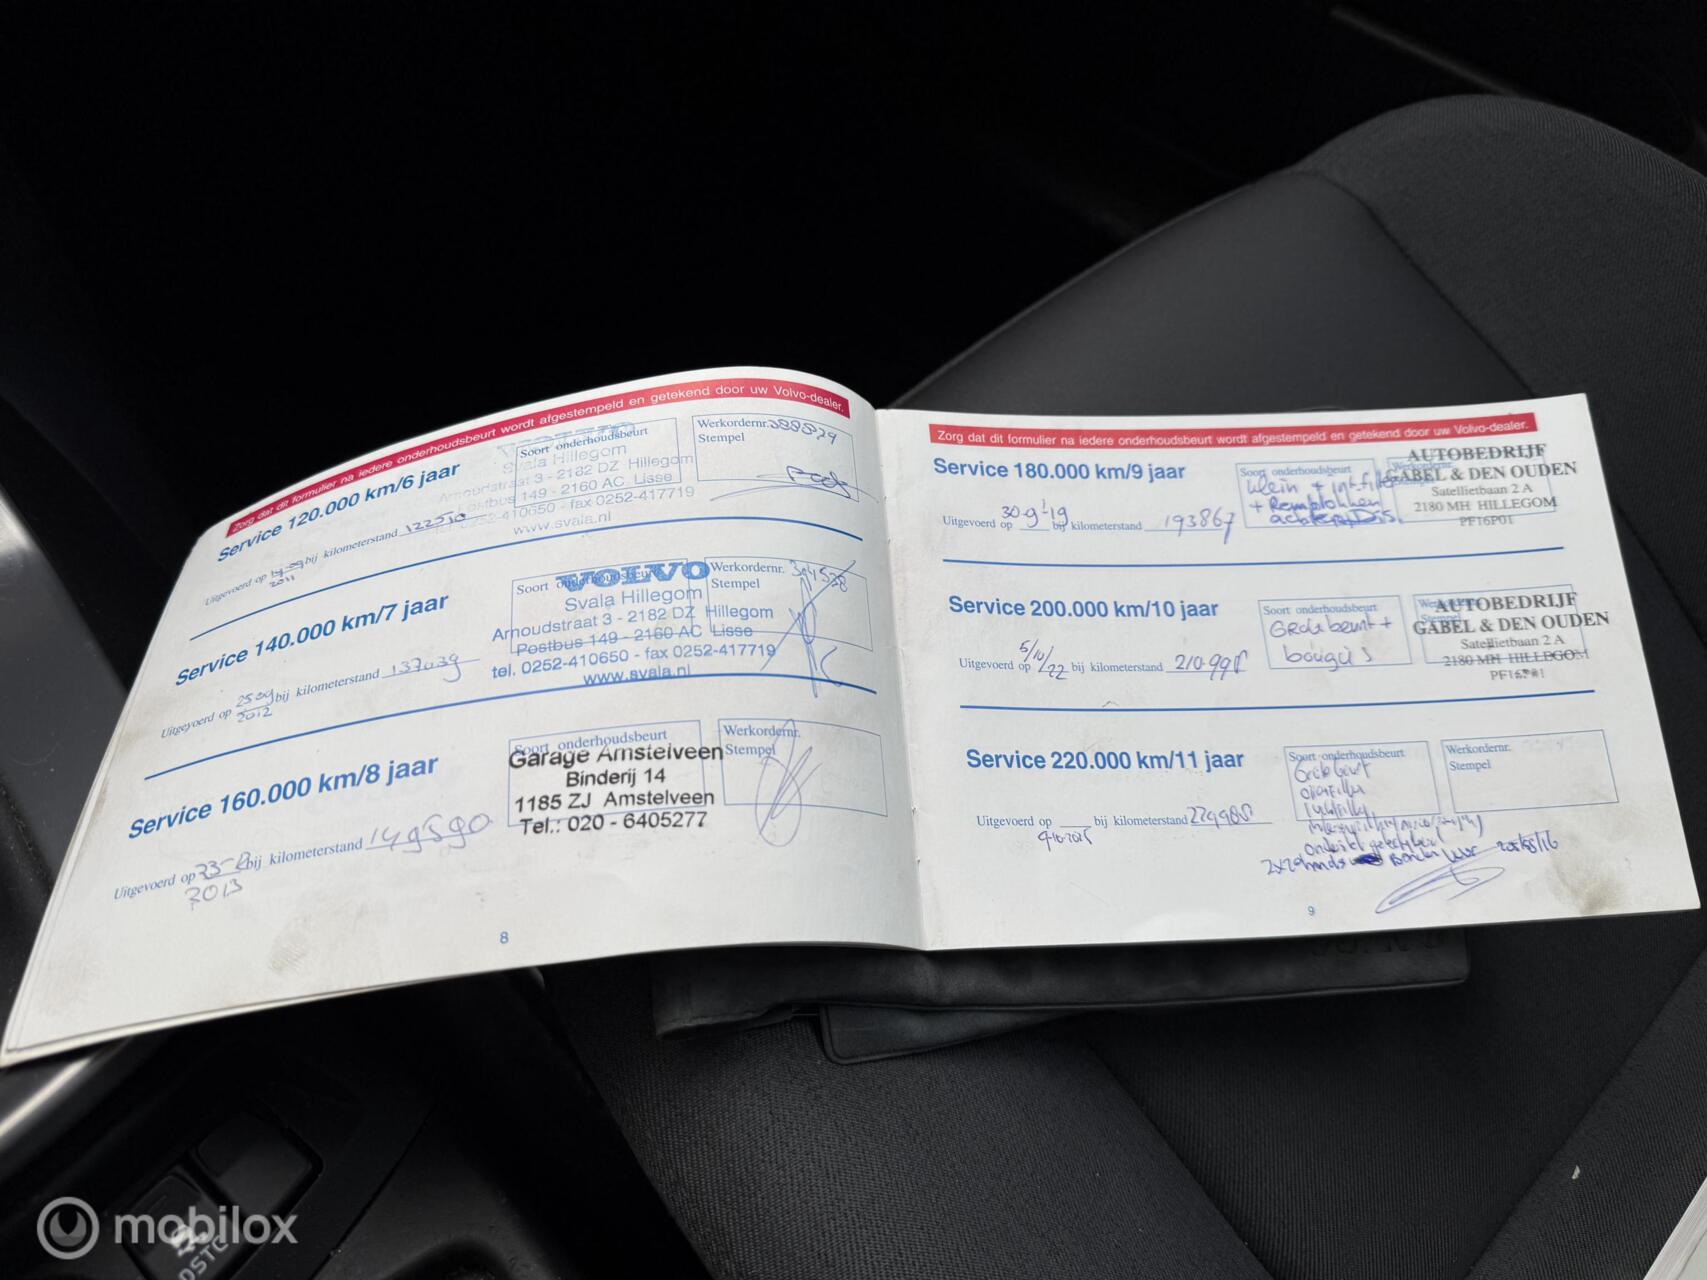 Zorg dat dit formulier na iedere onderhoudsbeurt wordt afgestempeld en getekend door uw Volvo-dealer.
Service 120.000 km/6 jaar
Soort onderhoudsbeurt
Svala Hillegom
Arnoudstraat 3 - 2182 DZ Hillegom
Postbus 149 - 2160 AC Lisse
0252-410650 - fax 0252-417719
www.svala.nl
Werkordernr.
Stempel
Uitgevoerd op 2011 bij kilometerstand 122510
Service 140.000 km/7 jaar
Soort onderhoudsbeurt
VOLVO
Svala Hillegom
Arnoudstraat 3 - 2182 DZ Hillegom
Postbus 149 - 2160 AC Lisse
tel. 0252-410650 - fax 0252-417719
www.svala.nl
Werkordernr. 304528
Stempel
Uitgevoerd op 25 09 2012 bij kilometerstand 137039
Service 160.000 km/8 jaar
Soort onderhoudsbeurt
Garage Amstelveen
Binderij 14
1185 ZJ Amstelveen
Tel.: 020 - 6405277
Werkordernr.
Stempel
Uitgevoerd op 2013 bij kilometerstand 149590
8
Zorg dat dit formulier na iedere onderhoudsbeurt wordt afgestempeld en getekend door uw Volvo-dealer.
Service 180.000 km/9 jaar
Soort onderhoudsbeurt
Klein + Int-filter
+ Remblokken
achter
Werkordernr.
AUTOBEDRIJF
GABEL & DEN OUDEN
Satellietbaan 2 A
2180 MH HILLEGOM
PF16P01
Uitgevoerd op 30-9-19 bij kilometerstand 193867
Service 200.000 km/10 jaar
Soort onderhoudsbeurt
Grote beurt +
bougies
AUTOBEDRIJF
GABEL & DEN OUDEN
Satellietbaan 2 A
2180 MH HILLEGOM
Uitgevoerd op 5/10/22 bij kilometerstand 210.991
Service 220.000 km/11 jaar
Soort onderhoudsbeurt
Grote beurt
oliefilter
luchtfilter
Werkordernr.
Stempel
Uitgevoerd op bij kilometerstand
2x2ehands Banden
9
mobilox